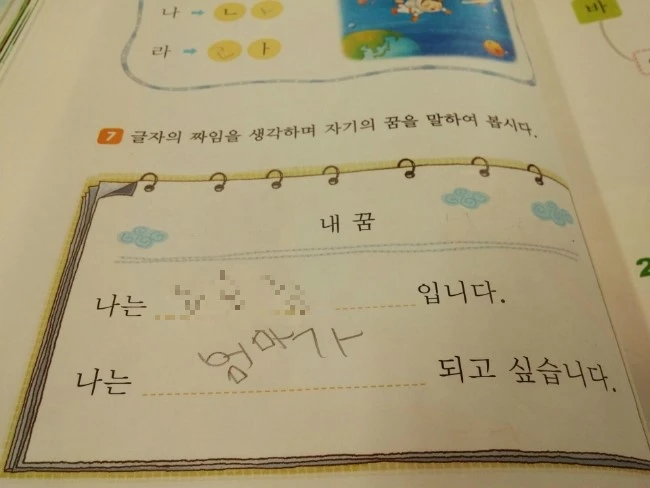 나 ➡ ㄴ ㅏ
라 ➡ ㄹ ㅏ
바
7 글자의 짜임을 생각하며 자기의 꿈을 말하여 봅시다.
내 꿈
나는 입니다.
나는 엄마가 되고 싶습니다.
2